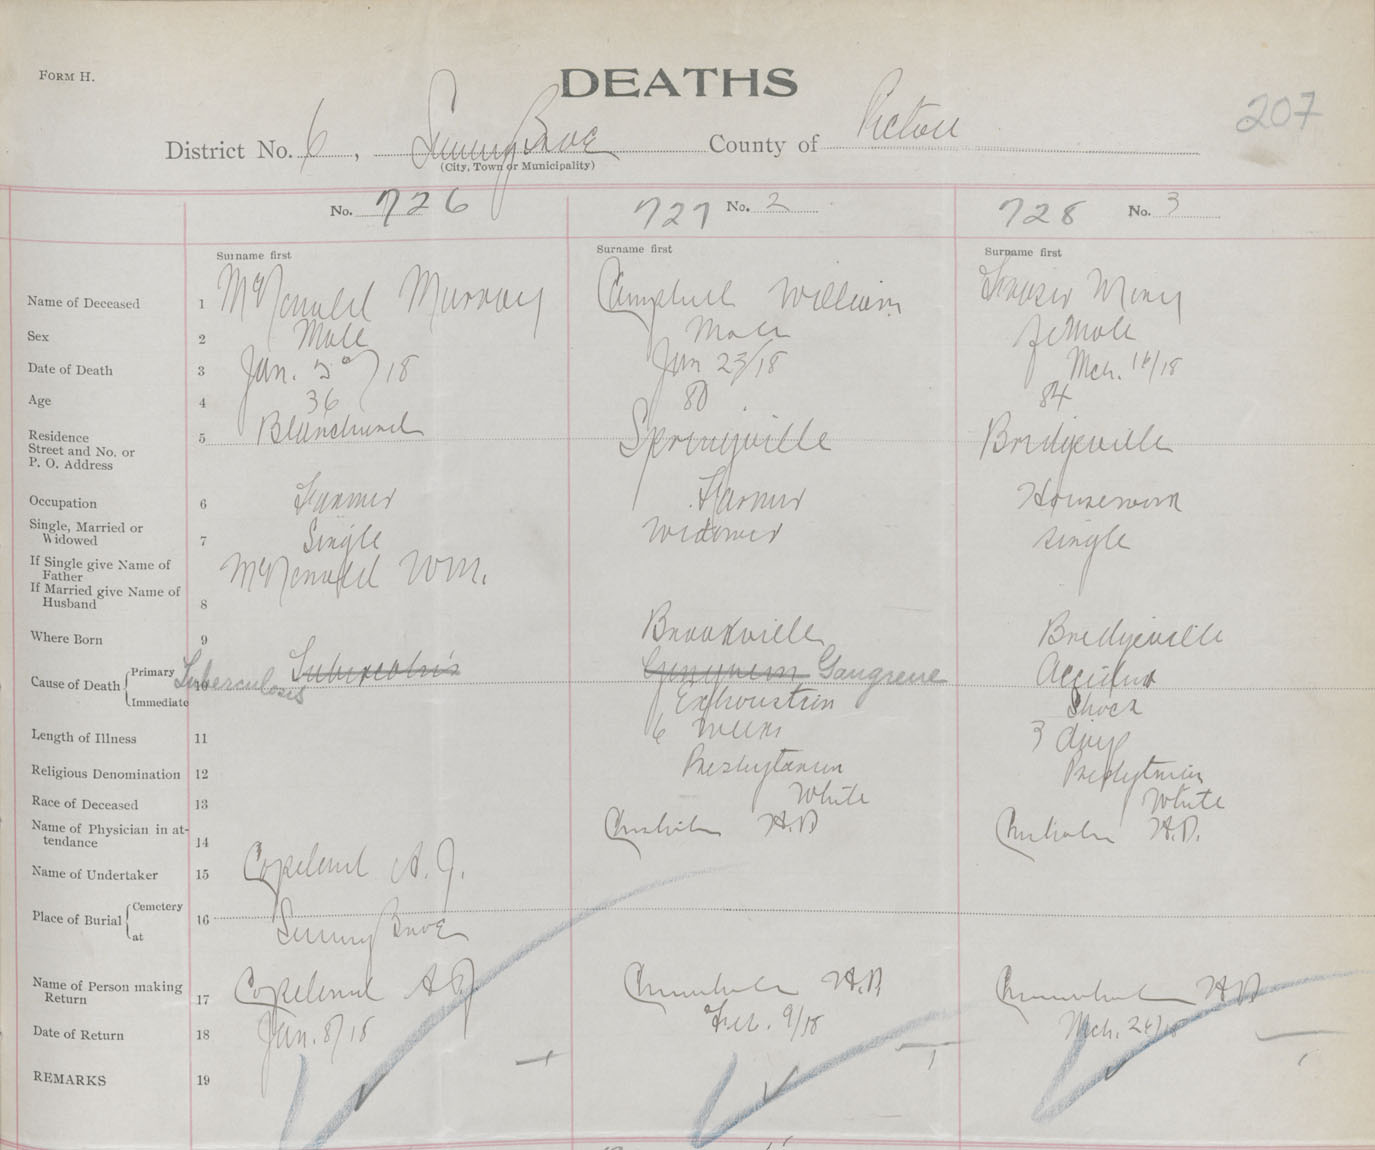 FORM H.
DEATHS
207
District No. 6, Sunny Brae County of Pictou
(City, Town or Municipality)
No. 726
727 No. 2
728 No. 3
Surname first Surname first Surname first
Name of Deceased 1 McDonald Murray Campbell William Fraser Mary
Sex 2 Male Male female
Date of Death 3 Jan. 18 Jan 23/18 Mch. /18
Age 4 36 80 84
Residence
Street and No. or
P. O. Address
5 Blanchard Springville Bridgeville
Occupation 6 Farmer Farmer Housework
Single, Married or
Widowed 7 Single Widower single
If Single give Name of
Father McDonald Wm.
If Married give Name of
Husband 8
Where Born 9 Brookville Bridgeville
Cause of Death Primary 10 Tuberculosis Tuberculosis Gangrene Accident
Immediate Exhaustion Shock
Length of Illness 11 6 weeks 3 days
Religious Denomination 12 Presbyterian Presbyterian
Race of Deceased 13 White White
Name of Physician in at-
tendance 14 Chisholm H.D Chisholm H.D.
Name of Undertaker 15 Copeland A.J.
Place of Burial Cemetery 16
at Sunny Brae
Name of Person making
Return 17 Copeland A J Chisholm H.D. Chisholm H D
Date of Return 18 Jan. 8/18 Feb. 9/18 Mch. /18
REMARKS 19